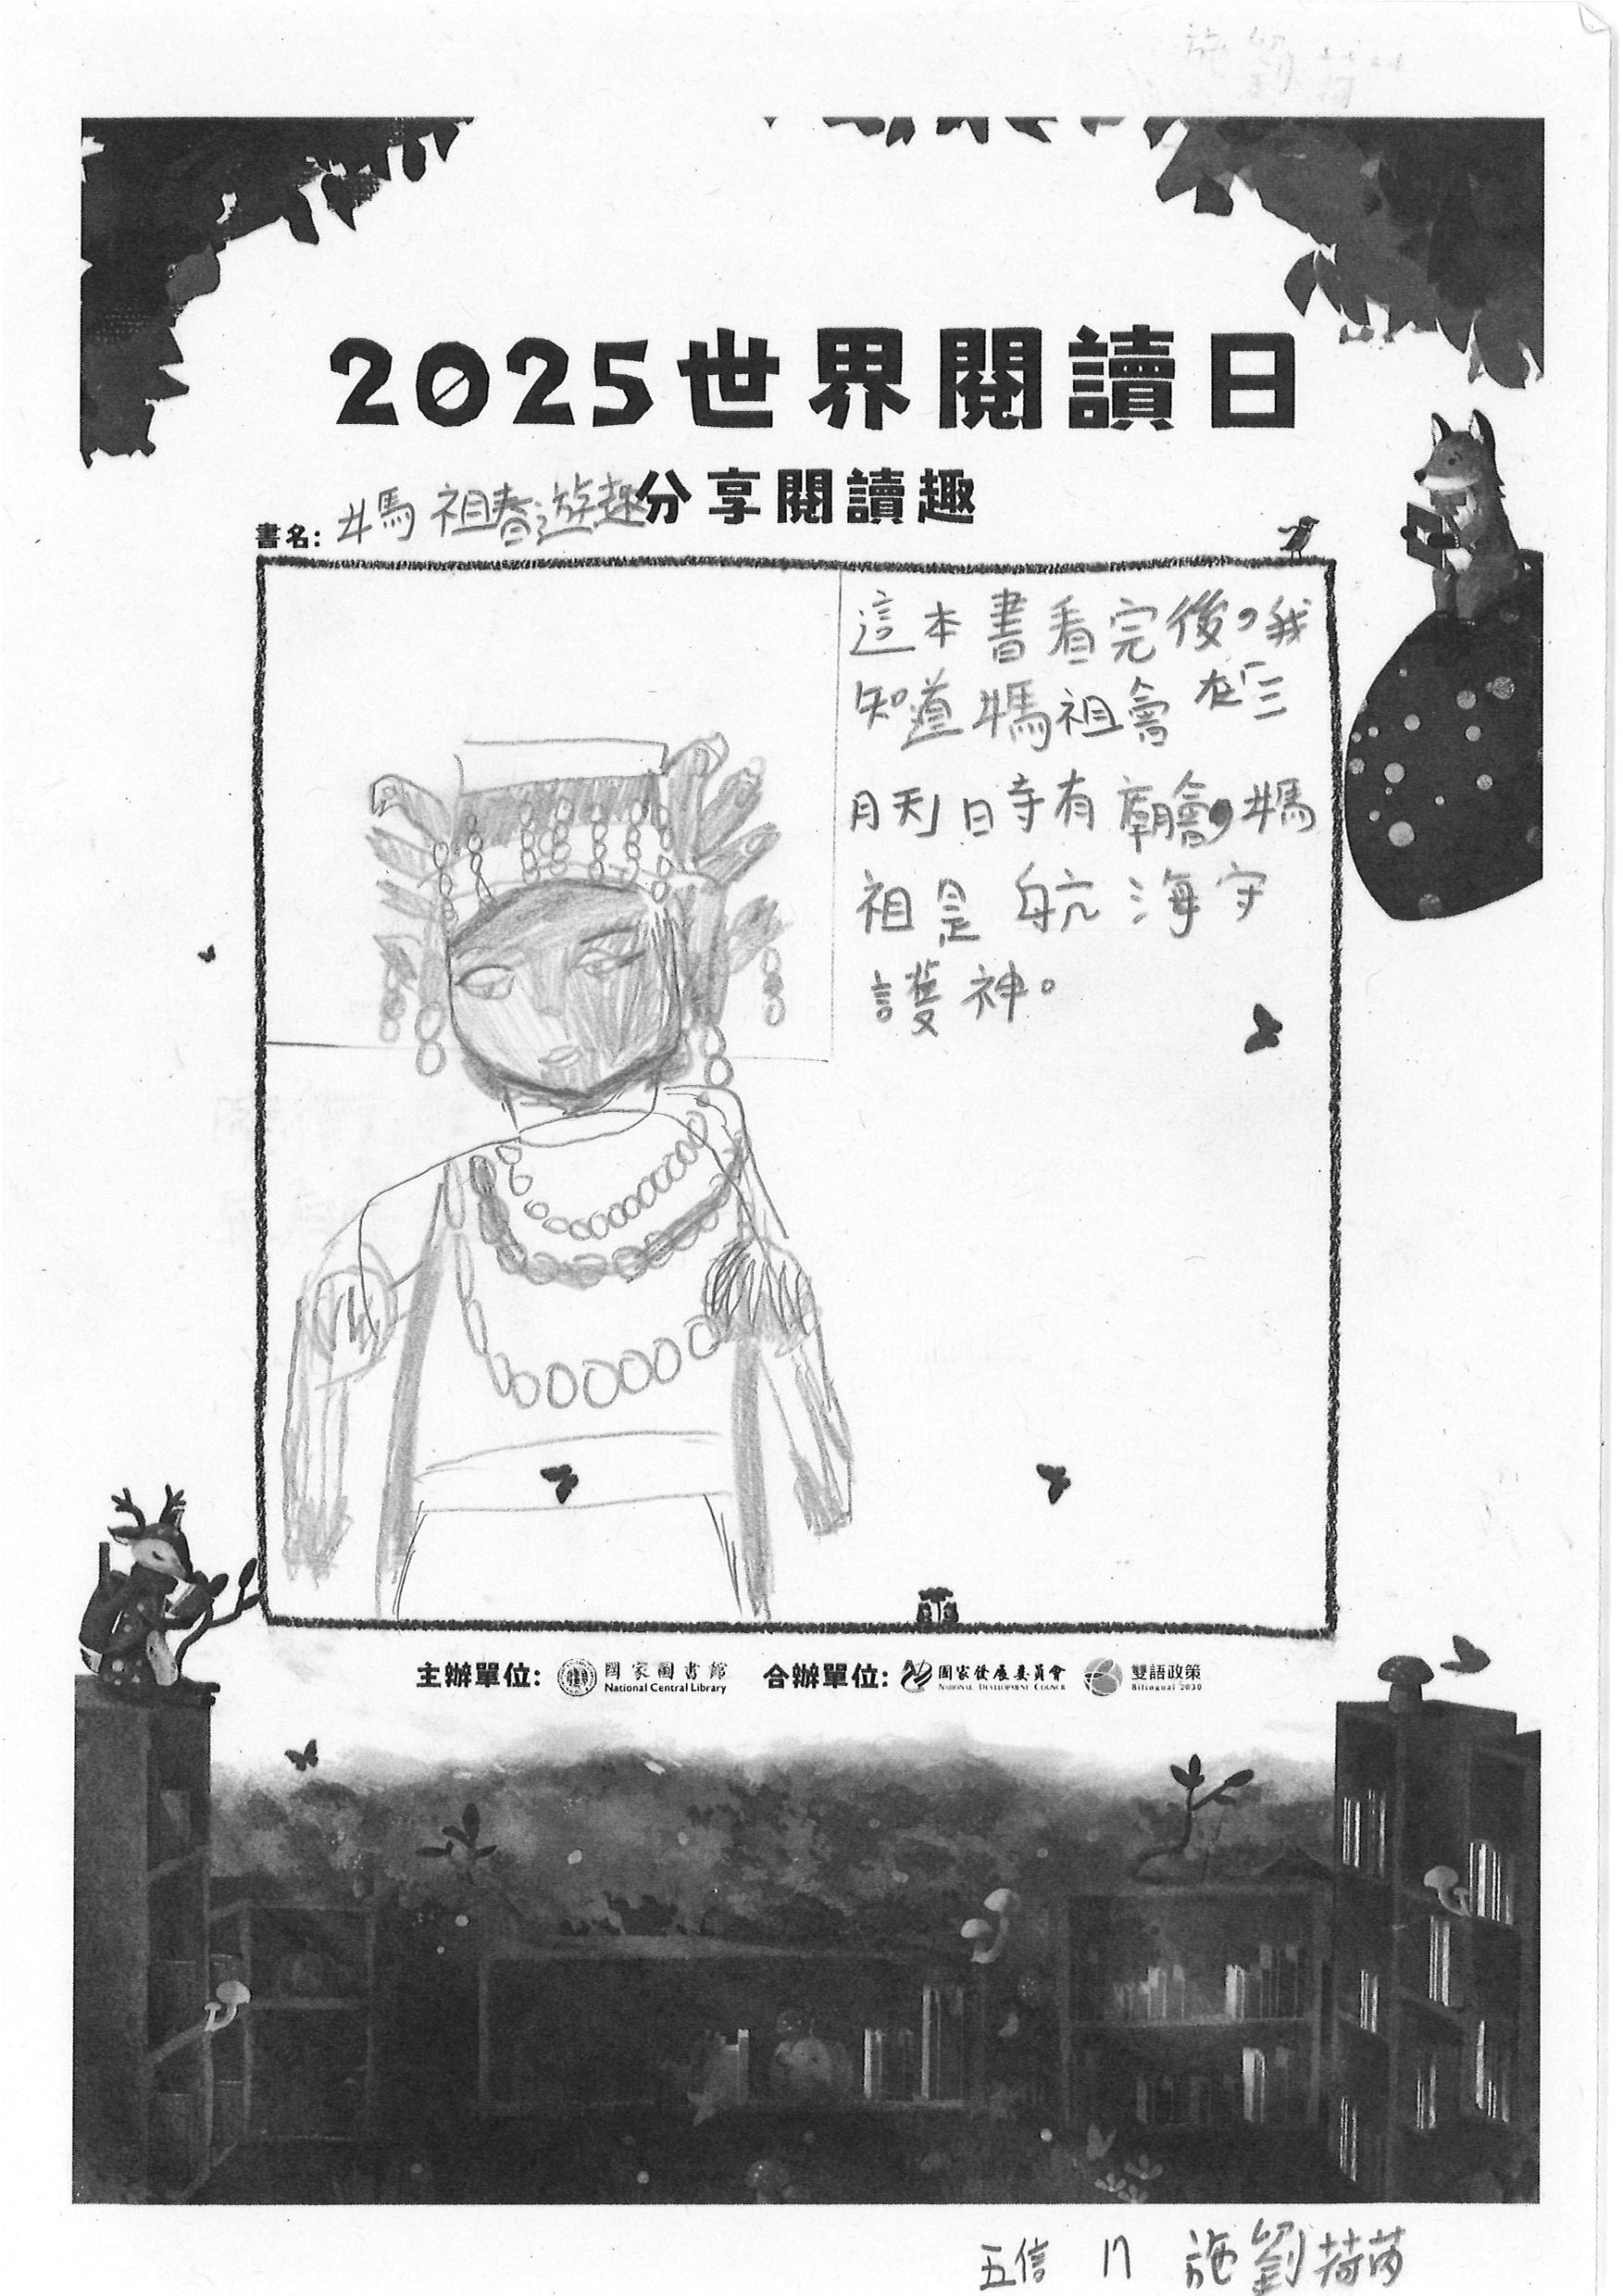 施劉荷
2025世界閱讀日
分享閱讀趣
書名: 媽祖春遊趣
這本書看完後,我
知道媽祖會在「三
月天」時有廟會,媽
祖是航海守
護神。
主辦單位: 國家圖書館 National Central Library 合辦單位: 國家發展委員會 National Development Council 雙語政策 Bilingual 2030
五信 17 施劉荷